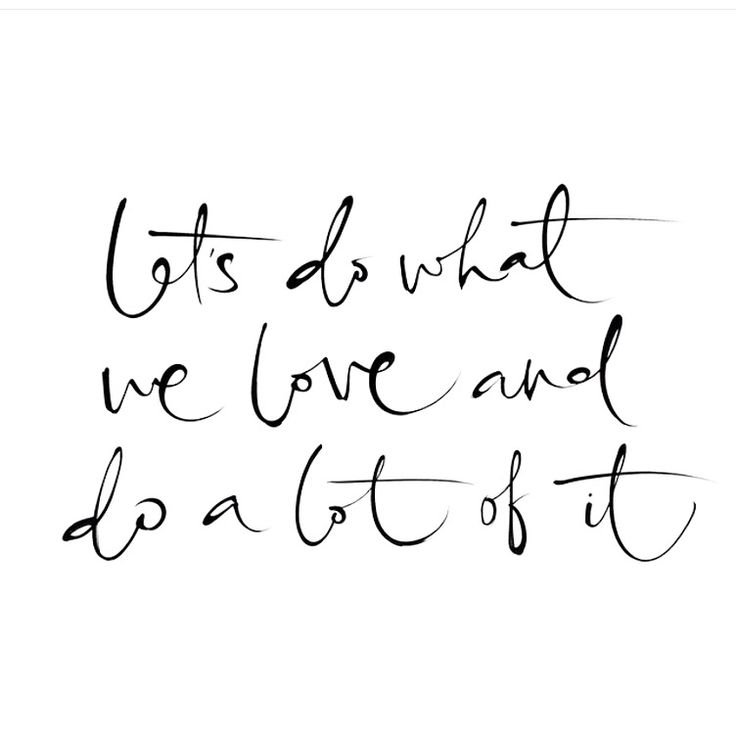 let's do what
we love and
do a lot of it